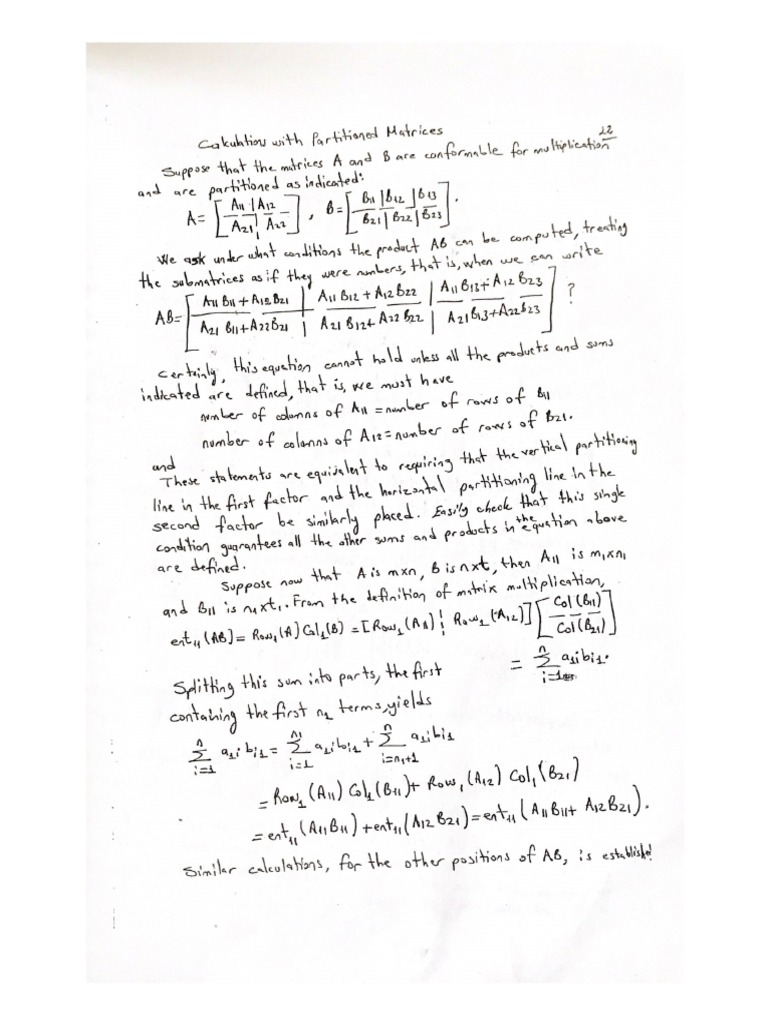 22
Calculations with Partitioned Matrices
Suppose that the matrices A and B are conformable for multiplication
and are partitioned as indicated:
A = [ A11 | A12 / A21 | A22 ] , B = [ B11 | B12 | B13 / B21 | B22 | B23 ] .
We ask under what conditions the product AB can be computed, treating
the submatrices as if they were numbers, that is, when we can write
AB = [ A11 B11 + A12 B21 | A11 B12 + A12 B22 | A11 B13 + A12 B23 / A21 B11 + A22 B21 | A21 B12 + A22 B22 | A21 B13 + A22 B23 ] ?
Certainly, this equation cannot hold unless all the products and sums
indicated are defined, that is, we must have
number of columns of A11 = number of rows of B11
and number of columns of A12 = number of rows of B21.
These statements are equivalent to requiring that the vertical partitioning
line in the first factor and the horizontal partitioning line in the
second factor be similarly placed. Easily check that this single
condition guarantees all the other sums and products in the equation above
are defined.
Suppose now that A is m×n, B is n×t, then A11 is m1×n1
and B11 is n1×t1. From the definition of matrix multiplication,
ent11 (AB) = Row1(A) Col1(B) = [Row1(A11) ¦ Row1(A12)] [ Col(B11) / Col(B21) ]
= Σ_{i=1}^{n} a1i bi1.
Splitting this sum into parts, the first
containing the first n1 terms, yields
Σ_{i=1}^{n} a1i bi1 = Σ_{i=1}^{n1} a1i bi1 + Σ_{i=n1+1}^{n} a1i bi1
= Row1(A11) Col1(B11) + Row1(A12) Col1(B21)
= ent11 (A11 B11) + ent11 (A12 B21) = ent11 (A11 B11 + A12 B21).
Similar calculations, for the other positions of AB, is established